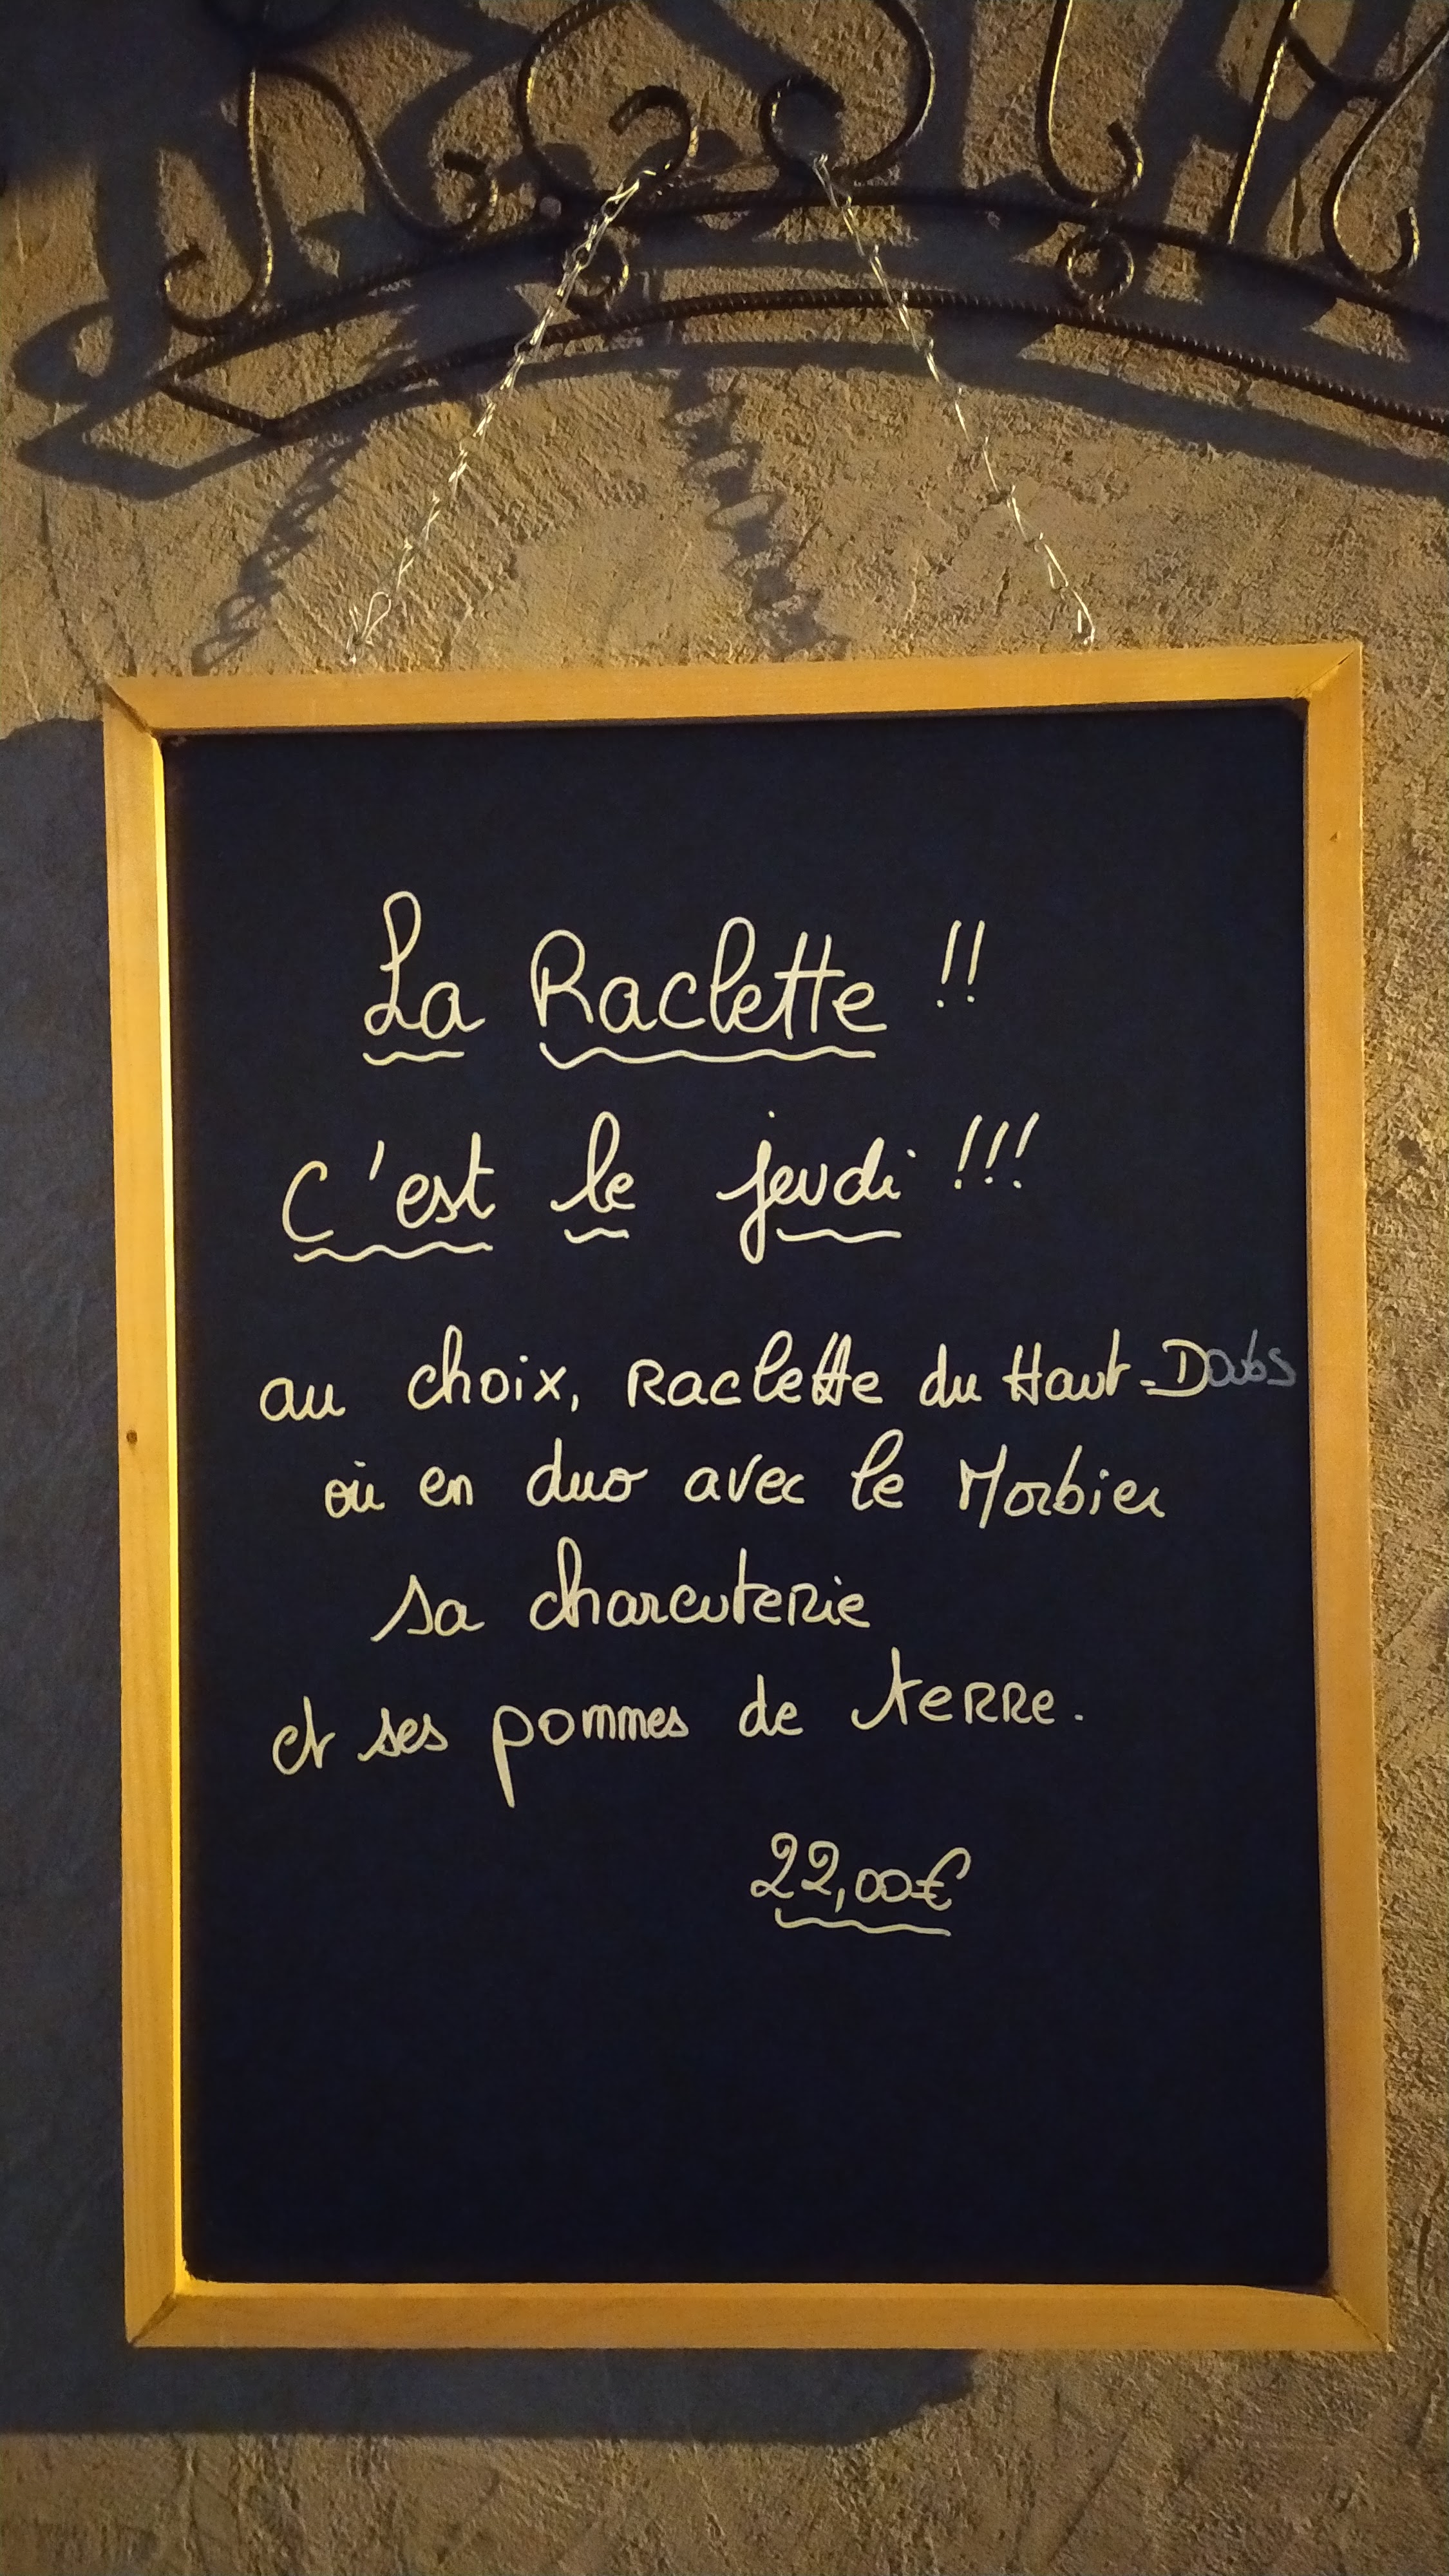 La Raclette !!
C'est le jeudi !!!
au choix, Raclette du Haut-Doubs
où en duo avec le Morbier
sa charcuterie
et ses pommes de terre.
22,00€